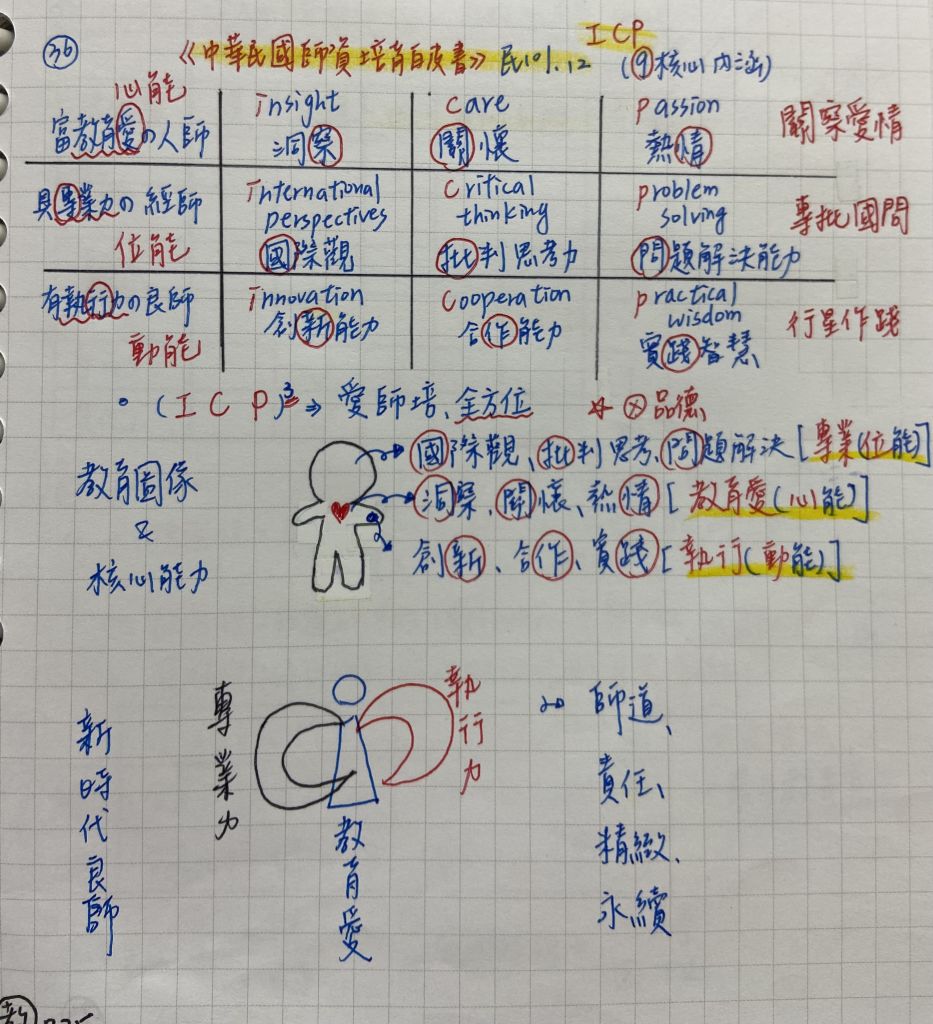 ICP
36 《中華民國師資培育白皮書》民101.12 (9核心內涵)
心能
富教育愛の人師
insight
洞察
care
關懷
passion
熱情
關察愛情
具專業力の經師
位能
international
perspectives
國際觀
critical
thinking
批判思考力
problem
solving
問題解決能力
專批國問
有執行力の良師
動能
innovation
創新能力
cooperation
合作能力
practical
wisdom
實踐智慧
行星作踐
• (ICP)³ ⇒ 愛師培、全方位 ☆ⓧ品德
教育圖像
&
核心能力
國際觀、批判思考、問題解決[專業(位能)]
洞察、關懷、熱情[教育愛(心能)]
創新、合作、實踐[執行(動能)]
新時代良師
專業力
教育愛
執行力
師道、
責任、
精緻、
永續